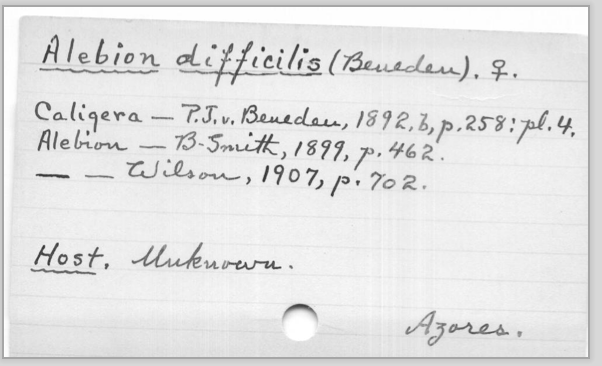 Alebion difficilis (Beneden). ♀.
Caligera — P.J.v. Beneden, 1892,b, p.258; pl.4.
Alebion — B-Smith, 1899, p.462.
— — Wilson, 1907, p.702.
Host. Unknown.
Azores.